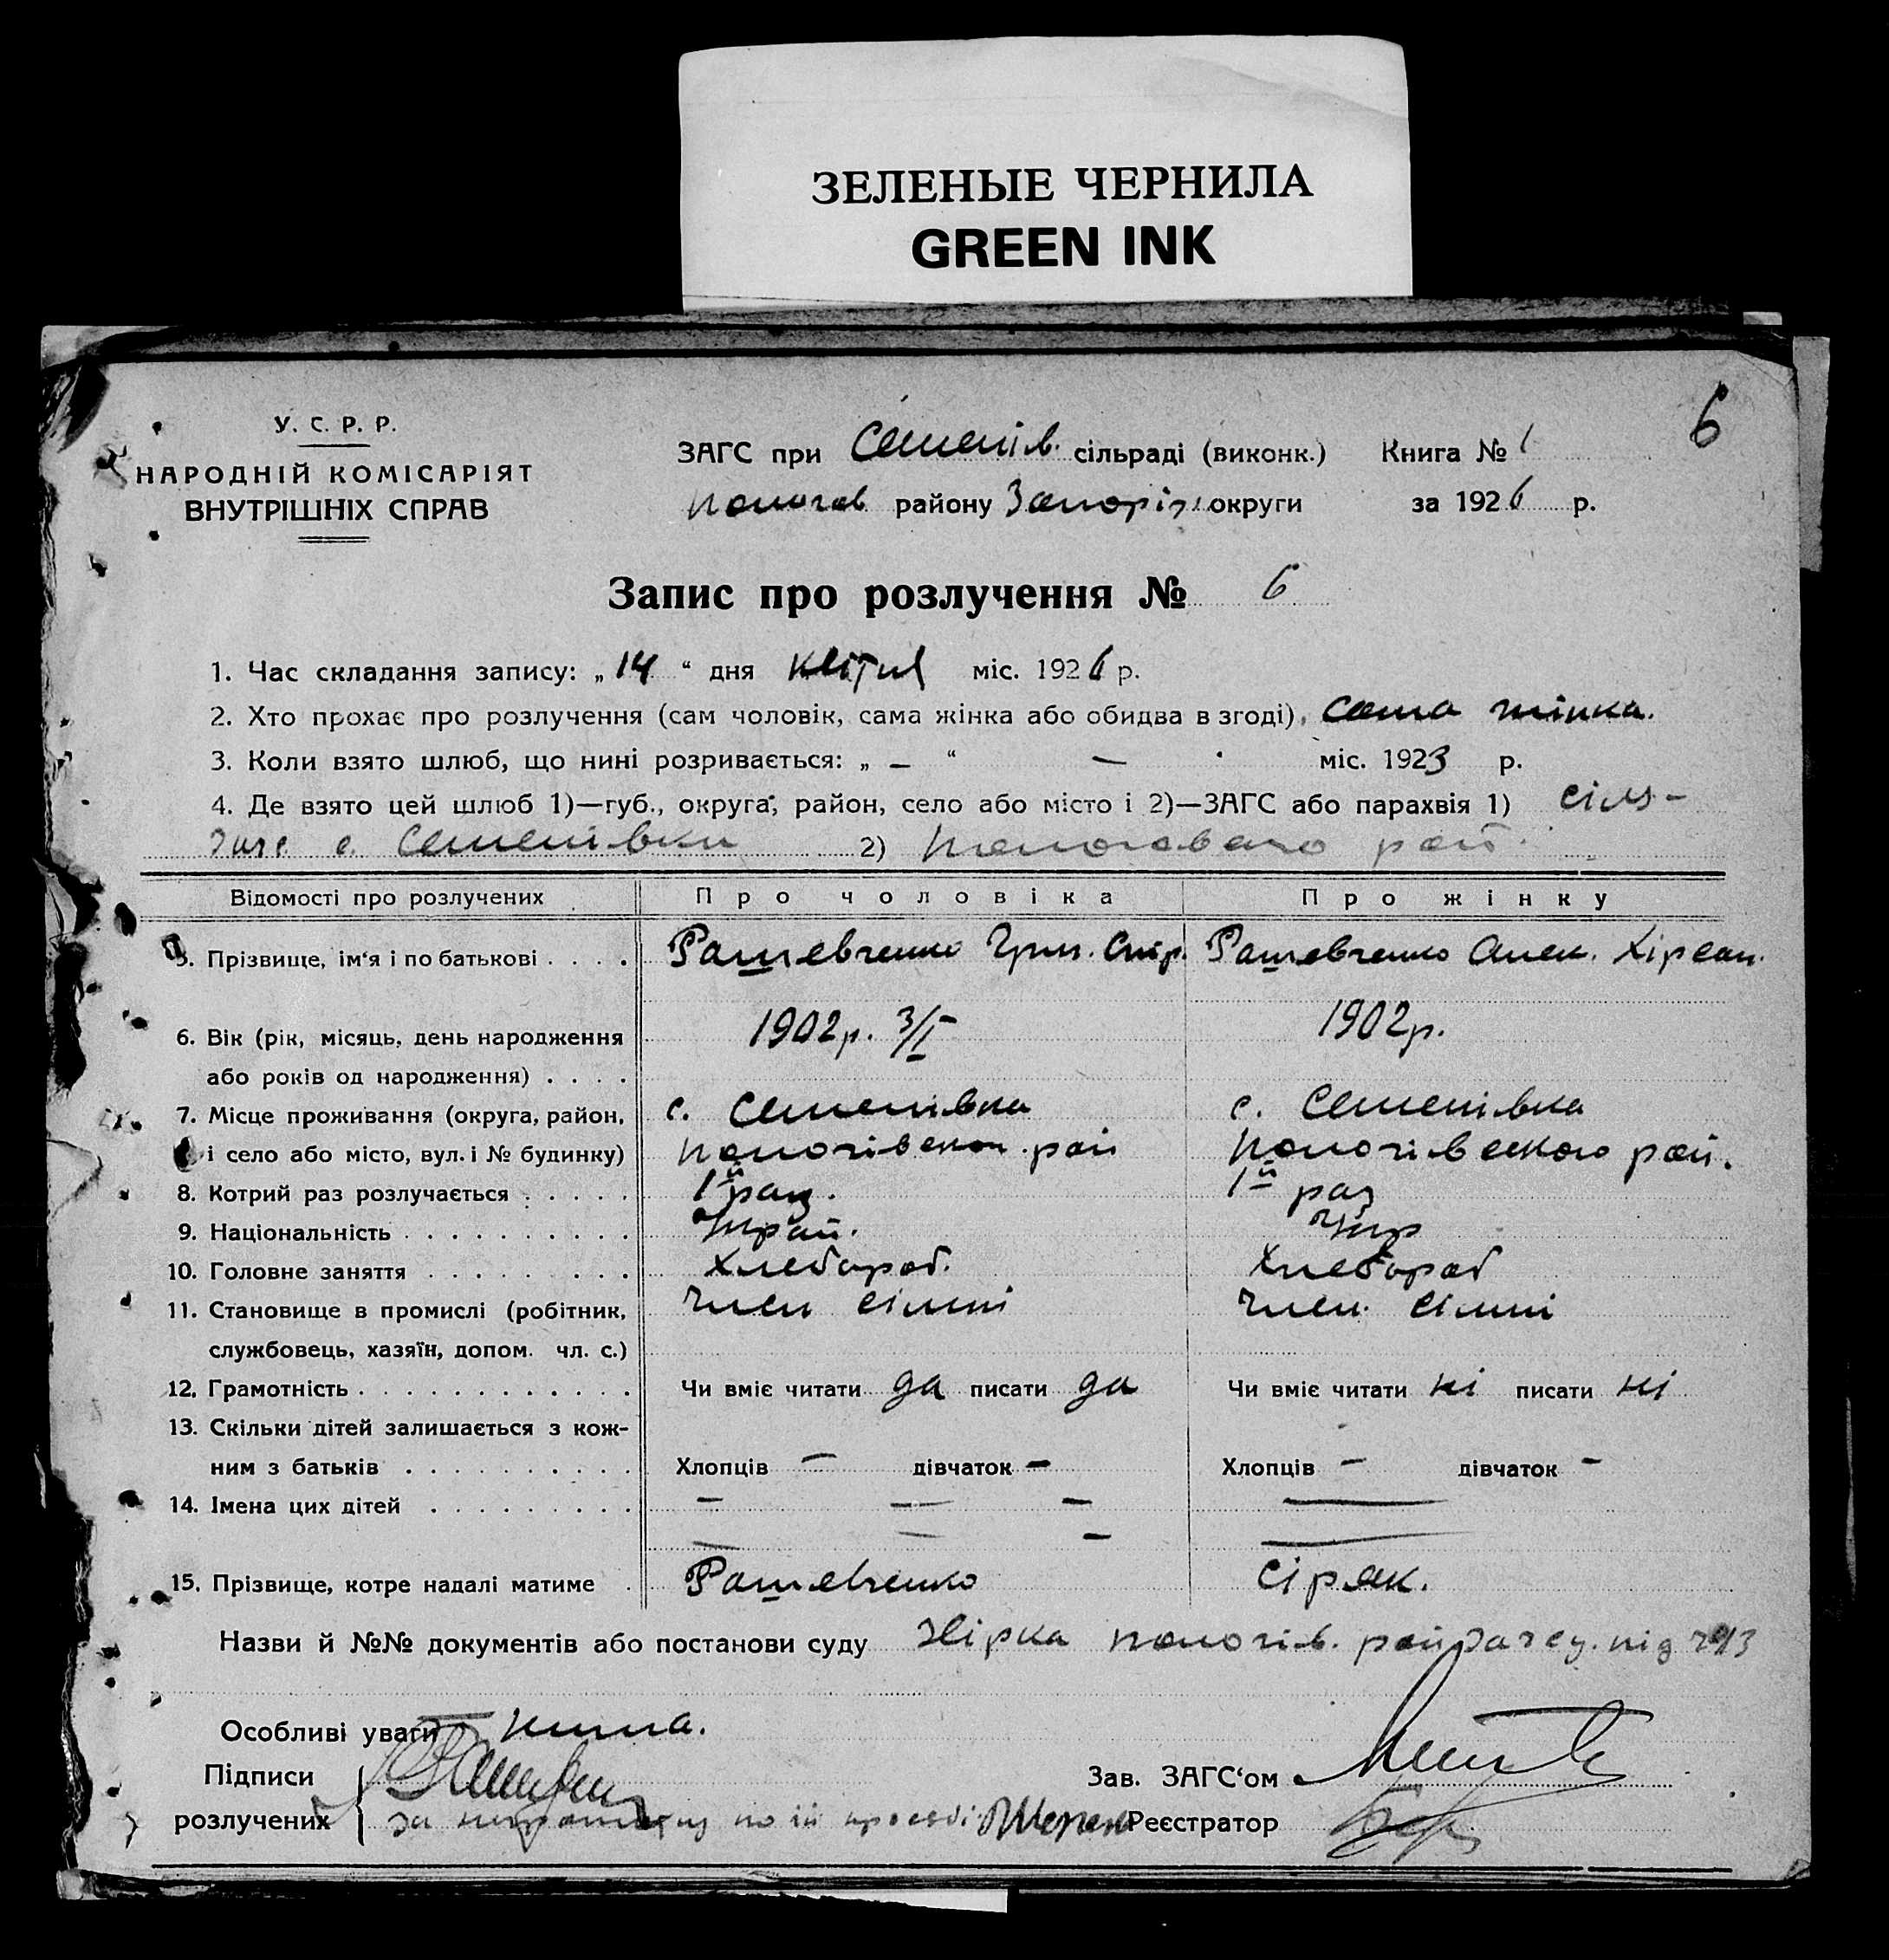 ЗЕЛЕНЫЕ ЧЕРНИЛА
GREEN INK
6
У. С. Р. Р.
НАРОДНІЙ КОМІСАРІЯТ
ВНУТРІШНІХ СПРАВ
ЗАГС при Семенів. сільраді (виконк.) Книга № 1
Пологов району Запоріз. округи за 1926 р.
Запис про розлучення № 6
1. Час складання запису: „14“ дня квітня міс. 1926 р.
2. Хто прохає про розлучення (сам чоловік, сама жінка або обидва в згоді) сама жінка.
3. Коли взято шлюб, що нині розривається: „ — “ — міс. 1923 р.
4. Де взято цей шлюб 1)—губ., округа, район, село або місто і 2)—ЗАГС або парахвія 1) сіль-
загс с. Семенівки 2) Пологовського рай.
Відомості про розлучених Про чоловіка Про жінку
5. Прізвище, ім'я і по батькові . . . . Рашевченко Григ. Спір. Рашевченко Алек. Хірсан.
6. Вік (рік, місяць, день народження 1902р. 3/I 1902р.
або років од народження) . . . .
7. Місце проживання (округа, район, с. Семенівка с. Семенівка
і село або місто, вул. і № будинку) Пологівськог. рай Пологівського рай.
8. Котрий раз розлучається . . . . . 1й раз. 1й раз
9. Національність . . . . . . . . . . Украй. Укр
10. Головне заняття . . . . . . . . Хлебороб. Хлебороб
11. Становище в промислі (робітник, член сімні член. сімні
службовець, хазяїн, допом. чл. с.)
12. Грамотність . . . . . . . . . . . . Чи вміє читати да писати да Чи вміє читати ні писати ні
13. Скільки дітей залишається з кож-
ним з батьків . . . . . . . . . . Хлопців — дівчаток — Хлопців — дівчаток —
14. Імена цих дітей . . . . . . . . . — — — —
— — — —
15. Прізвище, котре надалі матиме . Рашевченко Сіряк.
Назви й №№ документів або постанови суду Пологів. під
Особливі уваги нима.
Підписи Зав. ЗАГС'ом
розлучених за неграмотну по її просьбі Реєстратор